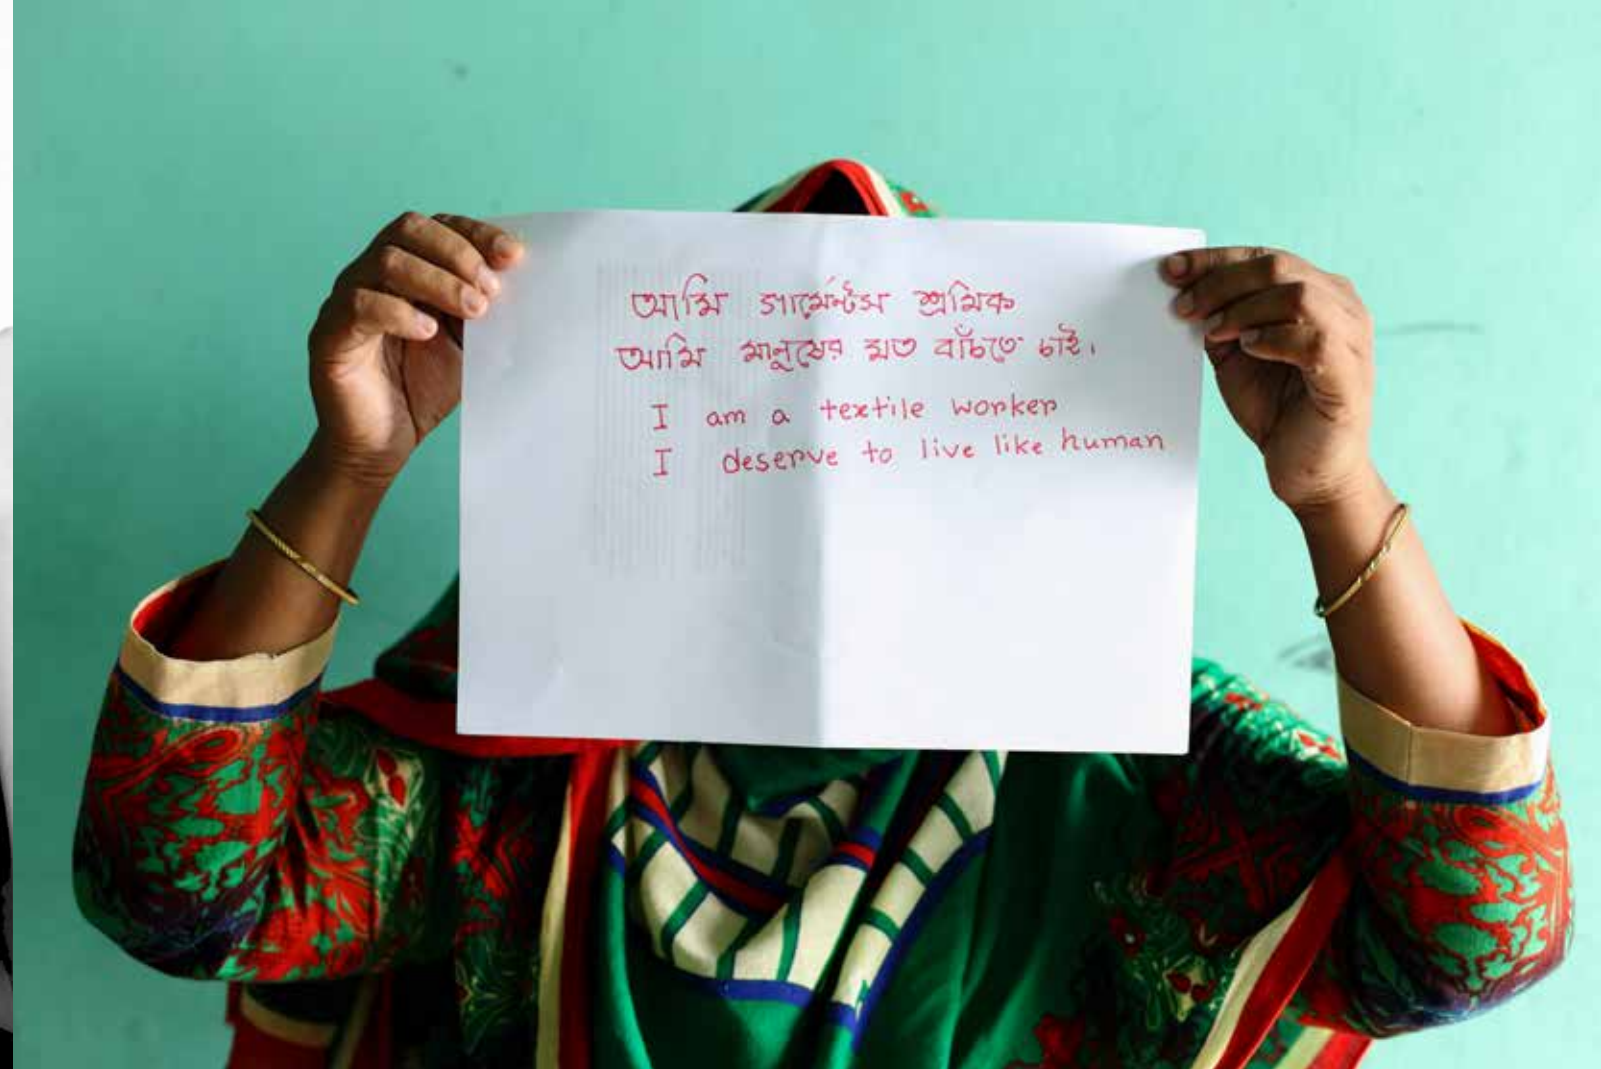 আমি গার্মেন্টস শ্রমিক
আমি মানুষের মত বাঁচতে চাই।
I am a textile worker
I deserve to live like human